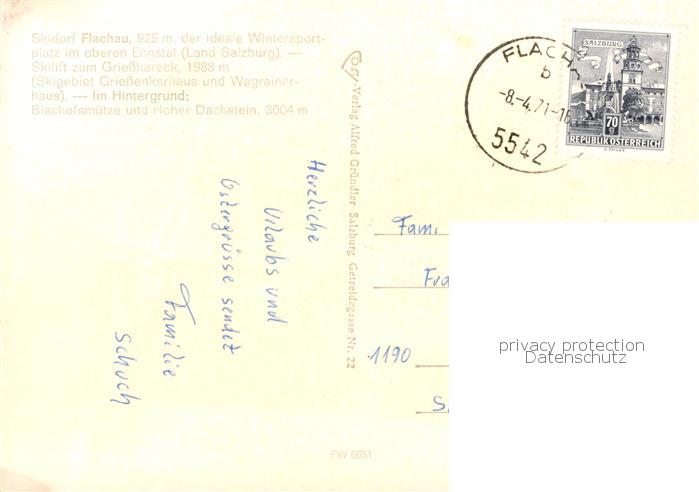 Skidorf Flachau, 925 m, der ideale Wintersport-
platz im oberen Ennstal (Land Salzburg). —
Skilift zum Grießkareck, 1988 m
(Skigebiet Grießenkarhaus und Wagrainer-
haus). — Im Hintergrund:
Bischofsmütze und Hoher Dachstein, 3004 m
Herzliche
Urlaubs und
Ostergrüsse sendet
Familie
Schuch
-Verlag Alfred Gründler Salzburg Getreidegasse Nr. 22
FW 6651
FLACH
b
-8.-4.71-16
5542
SALZBURG
70
REPUBLIK ÖSTERREICH
Fami
Fra
1190
privacy protection
Datenschutz